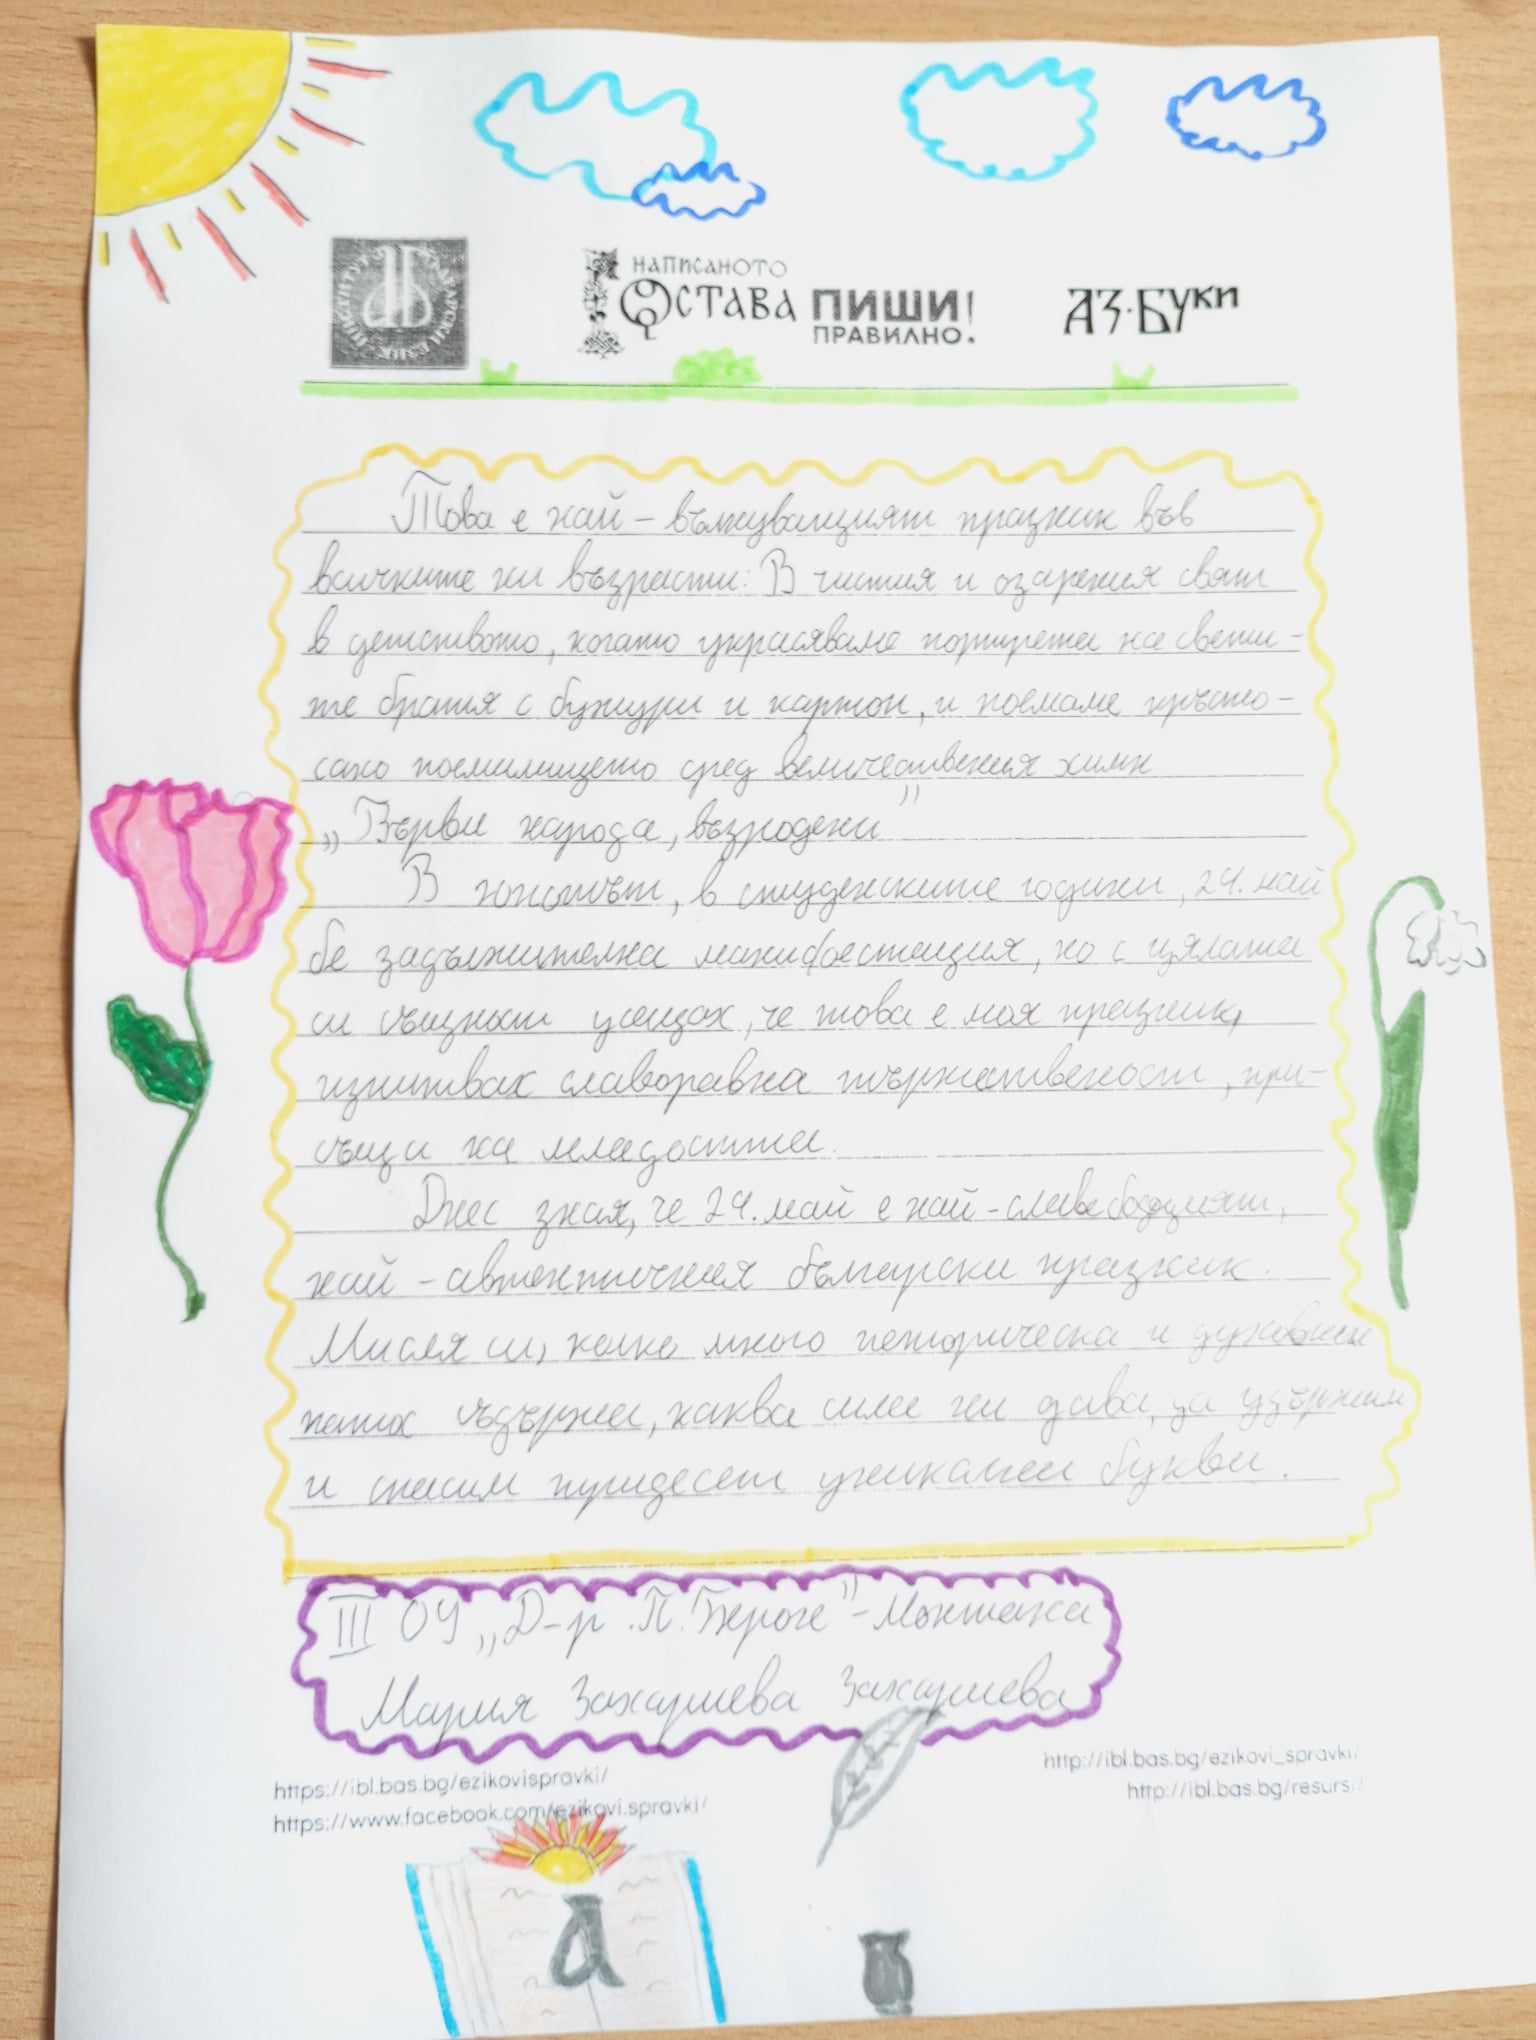 ИНСТИТУТ ЗА БЪЛГАРСКИ ЕЗИК
НАПИСАНОТО
ОСТАВА ПИШИ!
ПРАВИЛНО.
АЗ·БУКИ
Това е най-вълнуващият празник във
всичките ни възрасти: В чистия и озарения свят
в детството, когато украсяваме портрета на свети-
те братя с божури и картон, и поемаме кръшно-
сано посмилището сред величествения химн
„Върви народе, възродени"
В юношът, в студентските години, 24. май
бе задължителна манифестация, но с цялата
си същност усещах, че това е моя празник,
изпитвах славоравна тържественост, при-
съща на младостта.
Днес зная, че 24. май е най-славе
най-автентичния български празник.
Мисля си, колко много историческа и духовна
памет съдържа, каква сила ни дава, да удържим
и спасим тридесет уникални букви.
III ОУ „Д-р. П. Берон" - Монтана
Мария Захариева Захариева
https://ibl.bas.bg/ezikovispravki/
https://www.facebook.com/ezikovi.spravki/
http://ibl.bas.bg/ezikovi_spravki/
http://ibl.bas.bg/resursi/
а